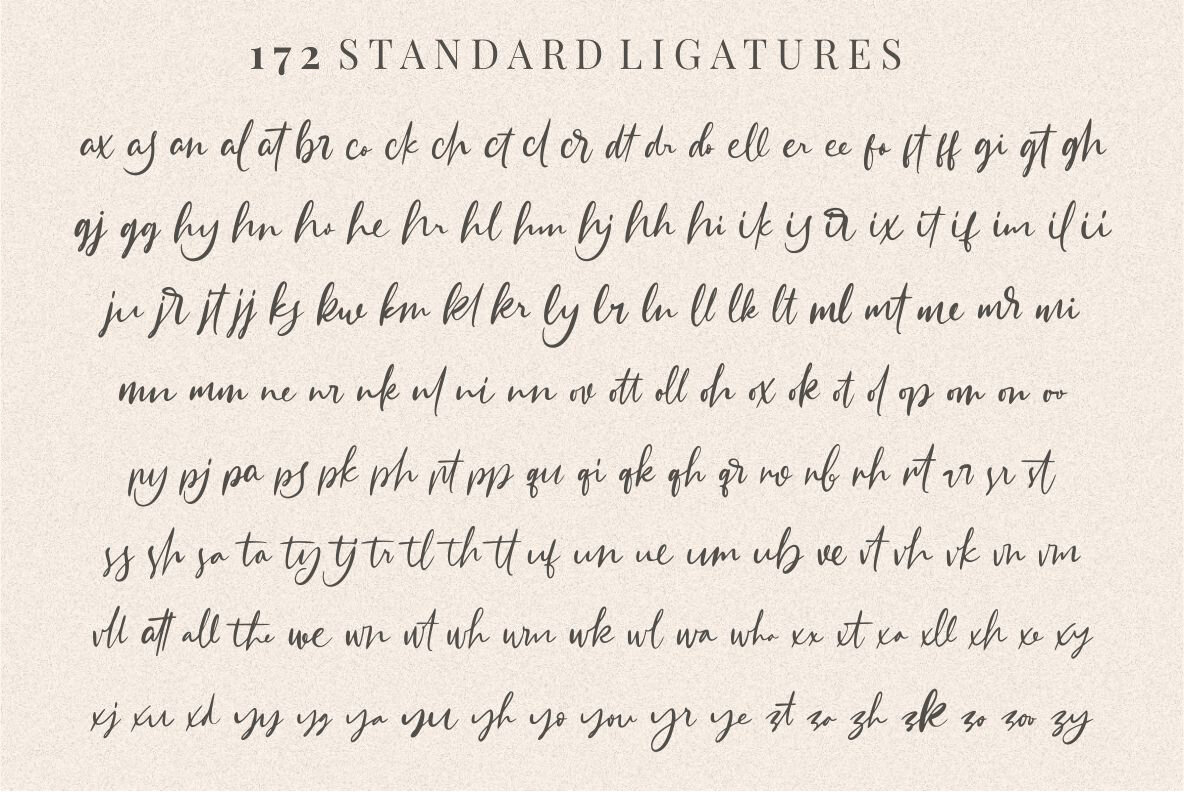 172 STANDARD LIGATURES
ax as an al at br co ck ch ct cl cr dt dr do ell er ee fo ft ff gi gt gh
gj gg hy hn ho he hr hl hm hj hh hi ik is ir ix it if im il ii
ju jr jt jj ks kw km kl kr ly lr ln ll lk lt ml mt me mr mi
mn mm ne nr nk nl ni nn ov ott oll oh ox ok ot ol op om on oo
py pj pa ps pk ph pt pp qu qi qk qh qr ro rb rh rt rr sr st
ss sh sa ta ty tj tr tl th tt uf un ue um ub ve vt vh vk vn vm
vll att all the we wn wt wh wm wk wl wa who xx xt xa xll xh xe xy
xj xu xd yy yg ya yu yh yo you yr ye zt za zh zk zo zoo zy